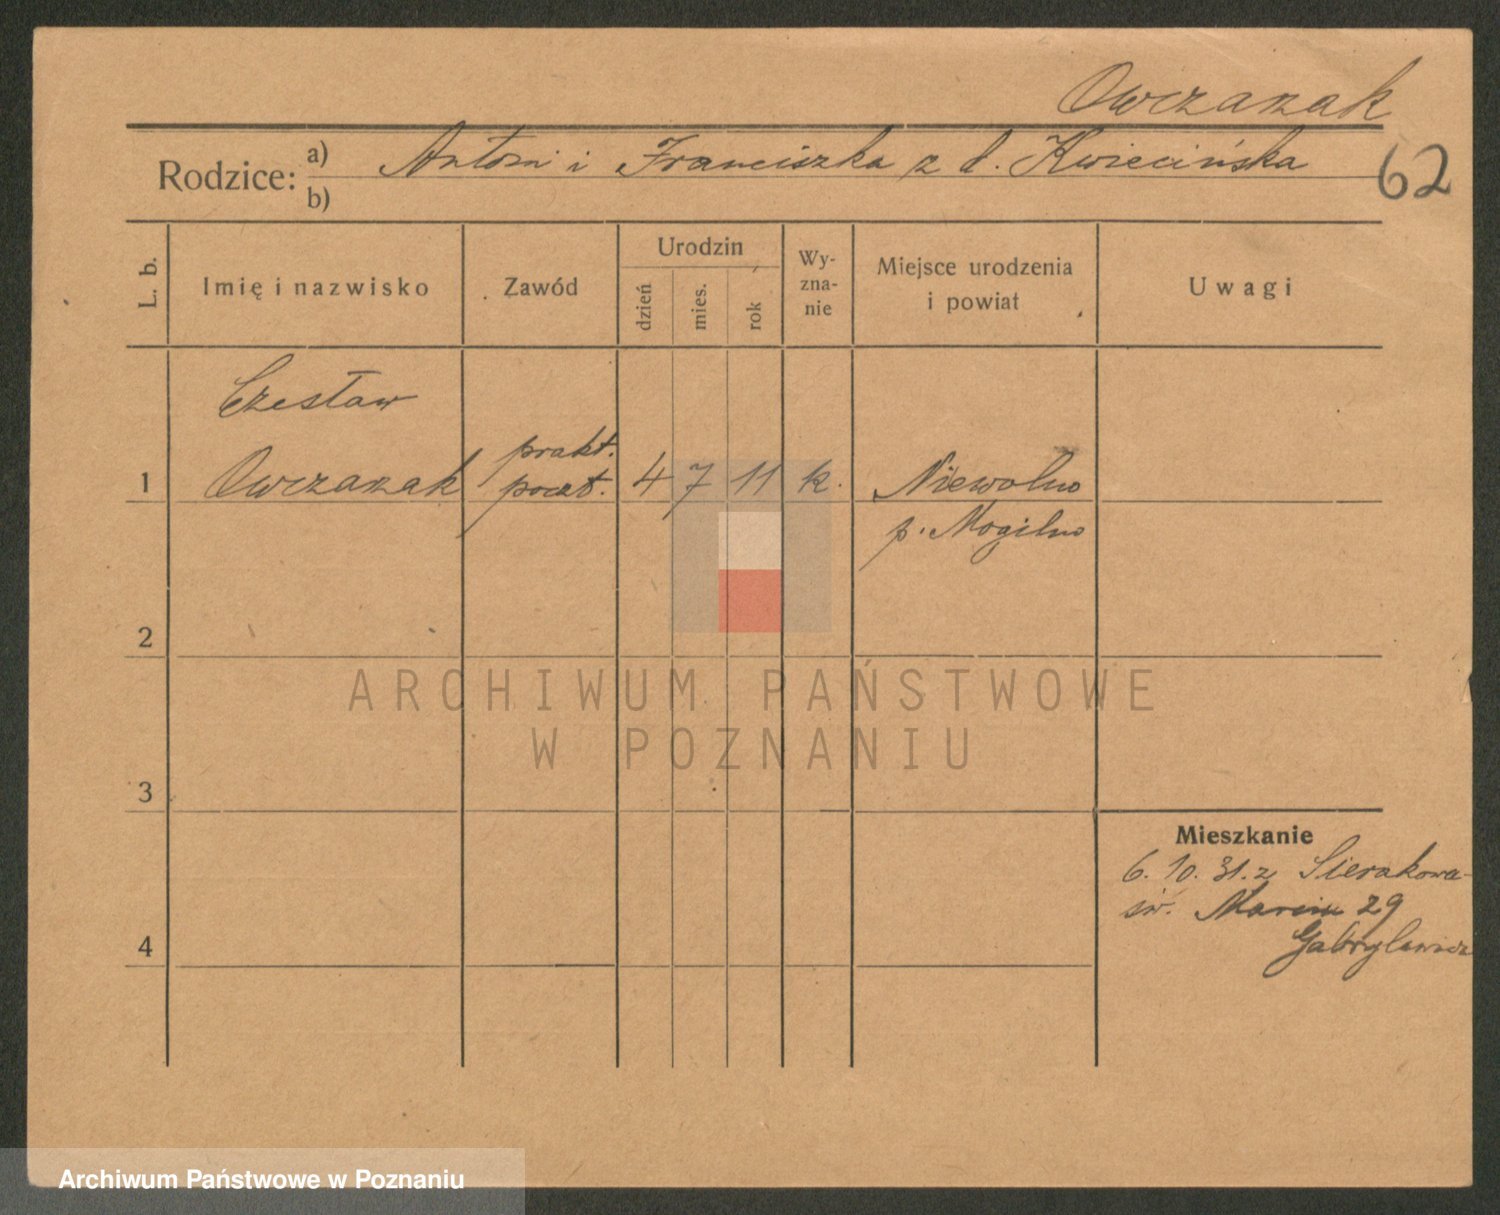 Owczarzak
Rodzice: a) Antoni i Franciszka z d. Kwiecińska
b)
62
L. b.
Imię i nazwisko
Zawód
Urodzin
dzień
mies.
rok
Wy-
zna-
nie
Miejsce urodzenia
i powiat
Uwagi
Czesław
1 Owczarzak
prakt.
poczt.
4 7 11 k.
Niewolno
p. Mogilno
2
3
4
Mieszkanie
6. 10. 31. z Sierakowa
św. Marcin 29
Gabrylewicz
ARCHIWUM PAŃSTWOWE
W POZNANIU
Archiwum Państwowe w Poznaniu